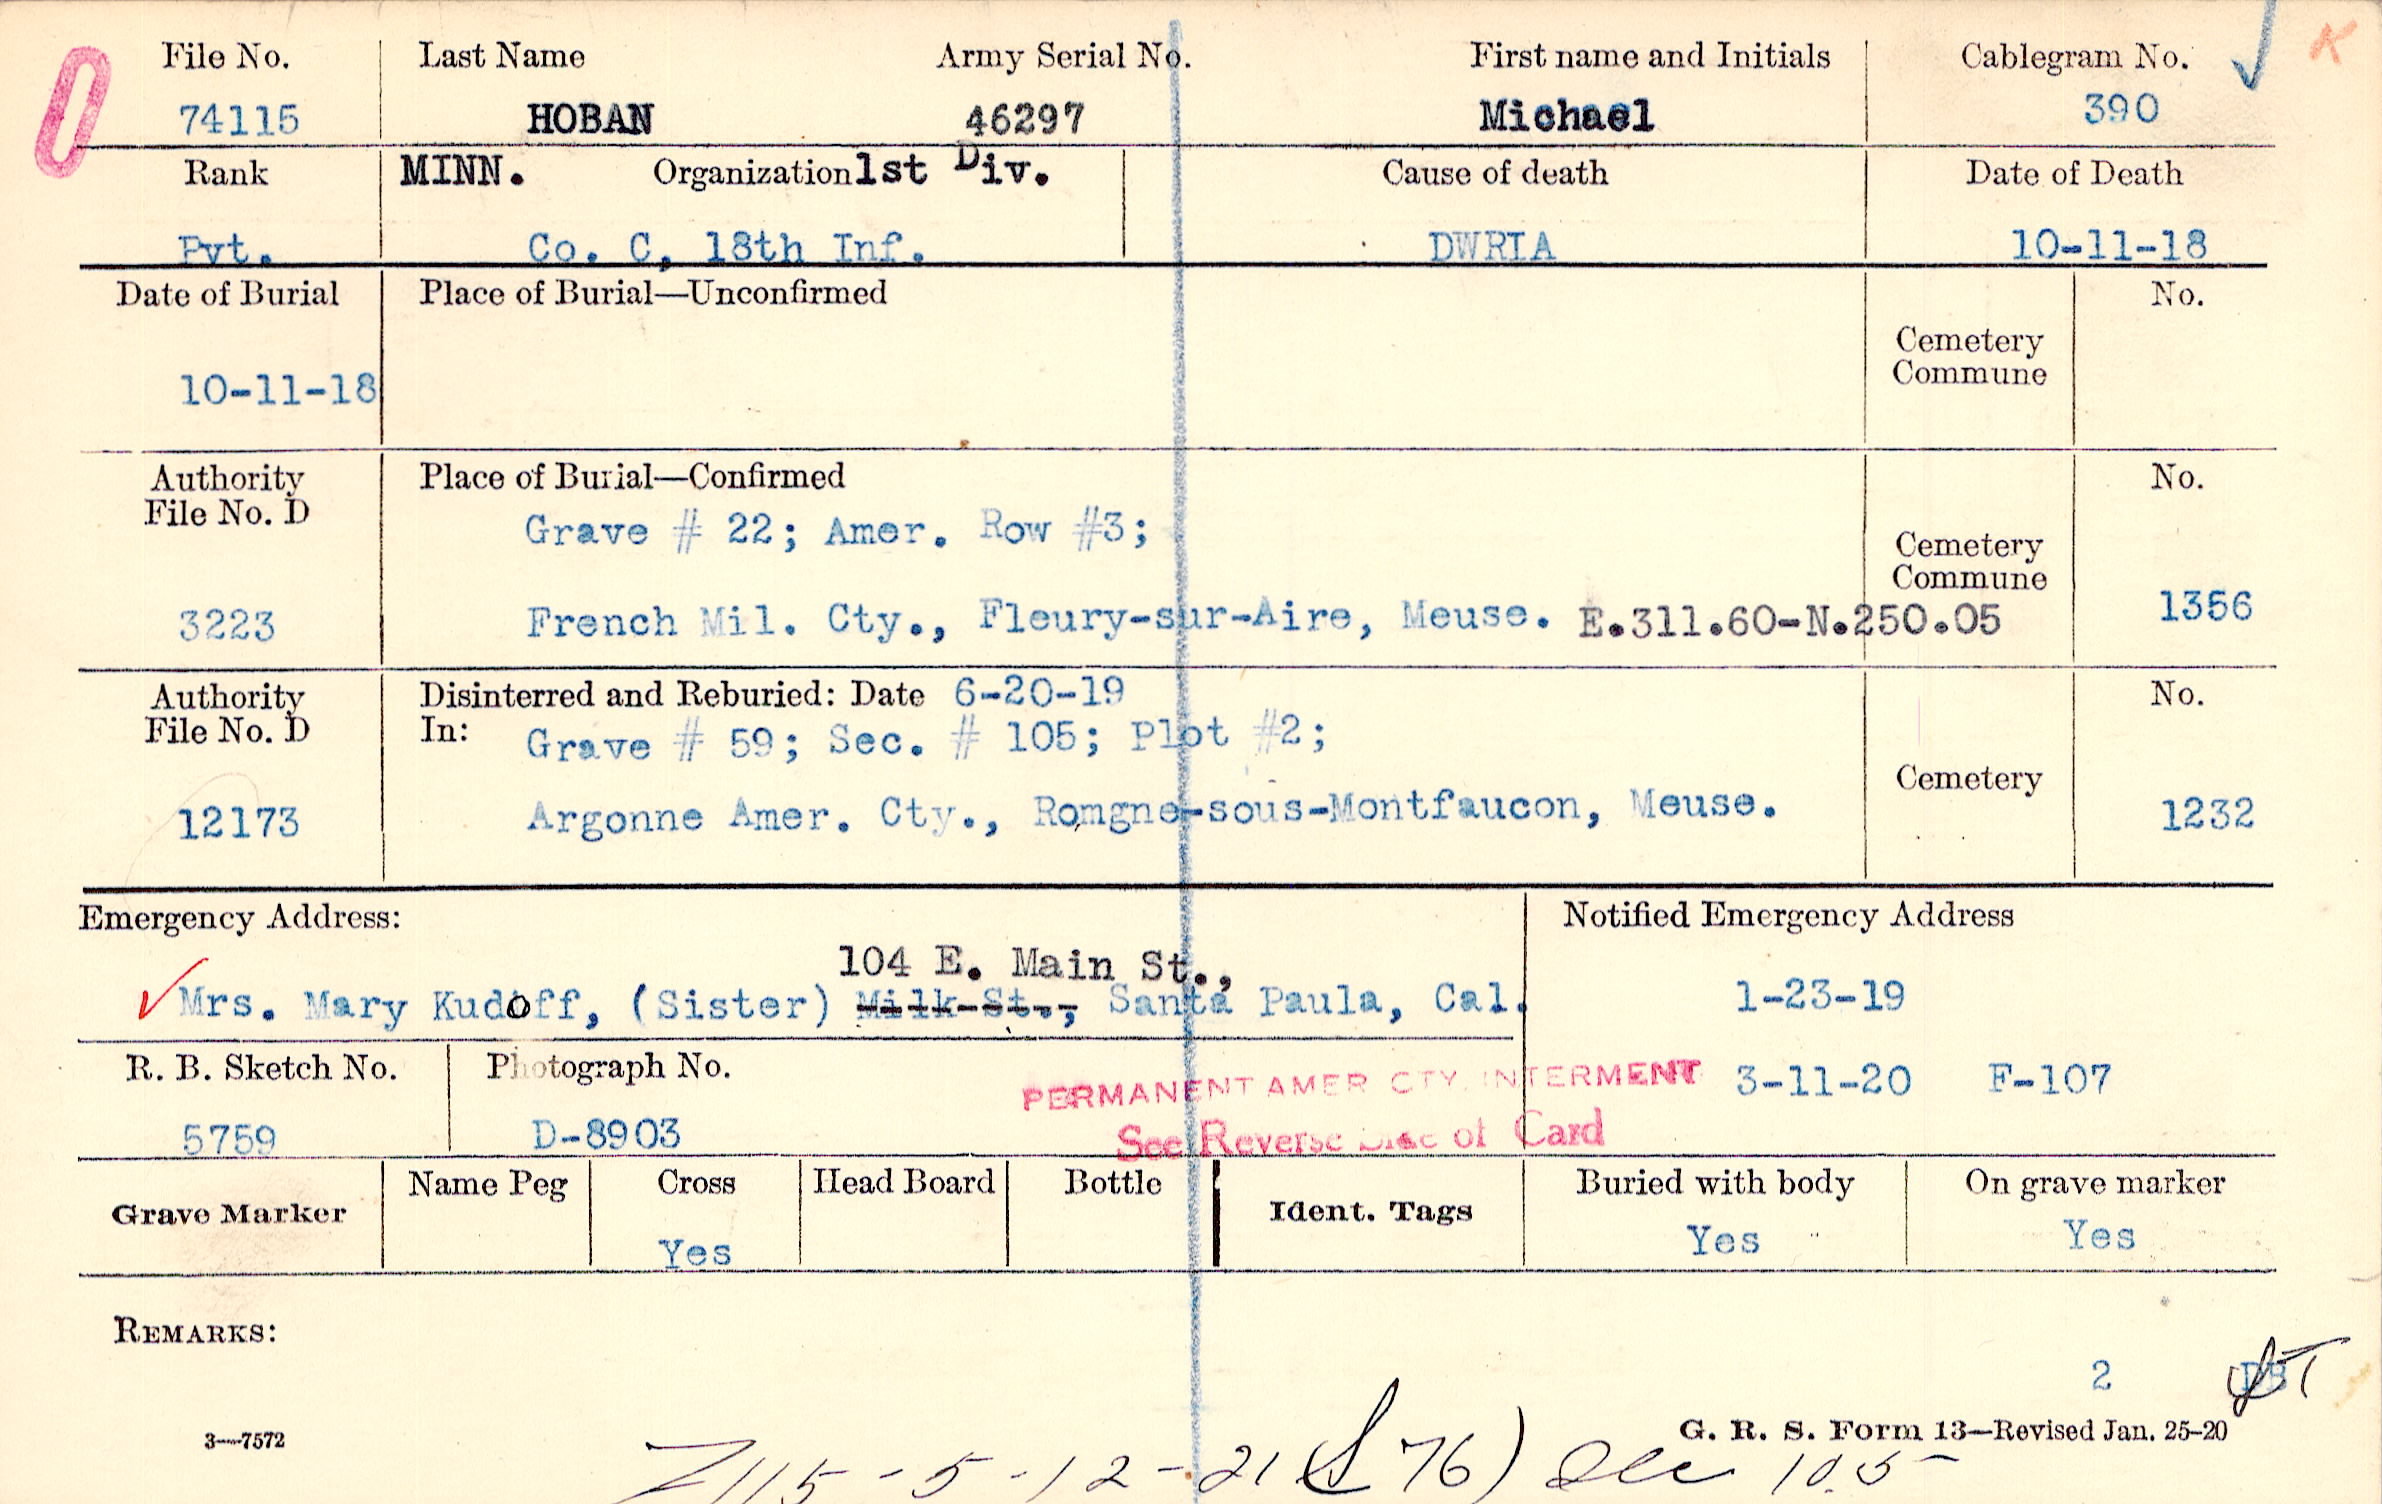 File No. Last Name Army Serial No. First name and Initials Cablegram No. K
74115 HOBAN 46297 Michael 390
Rank MINN. Organization 1st Div. Cause of death Date of Death
Pvt. Co. C, 18th Inf. DWRIA 10-11-18
Date of Burial Place of Burial—Unconfirmed No.
Cemetery
Commune
10-11-18
Authority Place of Burial—Confirmed No.
File No. D
Grave # 22; Amer. Row #3;
Cemetery
Commune
3223 French Mil. Cty., Fleury-sur-Aire, Meuse. E.311.60-N.250.05 1356
Authority Disinterred and Reburied: Date 6-20-19 No.
File No. D In: Grave # 59; Sec. # 105; Plot #2;
Cemetery
12173 Argonne Amer. Cty., Romgne-sous-Montfaucon, Meuse. 1232
Emergency Address: Notified Emergency Address
104 E. Main St.,
Mrs. Mary Kudoff, (Sister) Milk St., Santa Paula, Cal. 1-23-19
R. B. Sketch No. Photograph No.
PERMANENT AMER CTY. INTERMENT 3-11-20 F-107
5759 D-8903 See Reverse Side of Card
Grave Marker Name Peg Cross Head Board Bottle Ident. Tags Buried with body On grave marker
Yes Yes Yes
REMARKS:
2
3—7572 G. R. S. Form 13—Revised Jan. 25-20
5-12-21 76) 105